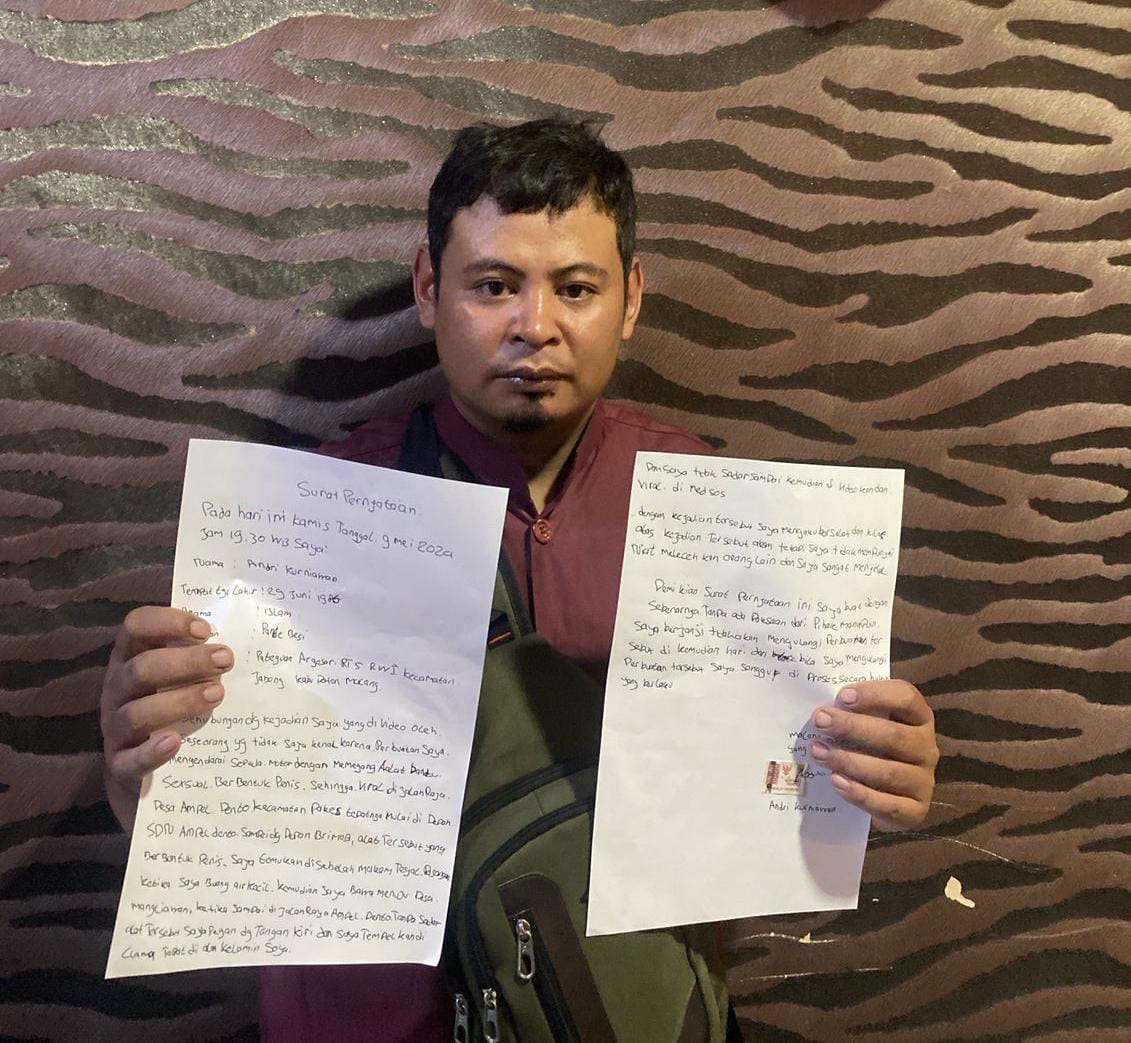 Surat Pernyataan
Pada hari ini kamis Tanggal. 9 mei 2024
Jam 19.30 WIB Saya:
Nama : Andri Kurniawan.
Tempat tgl Lahir : 29 Juni 1986
: Islam
: Besi
: RT 5 RW 1 kecamatan.
Jabung kab
kejadian Saya yang di Video oleh
Seseorang yg tidak Saya kenal karena Perbuatan Saya.
mengendarai Sepeda. Motor dengan Memegang Aalat Bantu
Sensual. BerBentuk Penis. Sehingga. Viral di jalan Raya.
Desa Ampel. Dento kecamatan Pakes tepatnya Mulai di Depan
SDN Ampel dento. Sampai dg Depan BriMOB, alat Tersebut yang
BerBentuk Penis. Saya temukan di Sebelah makam Tegal.
ketika Saya Buang air kecil. kemudian Saya Bawa Menuju Desa.
mangliawan, ketika Sampai di jalan Raya Ampel. Dento. Tanpa Sadar
alat Tersebut Saya Pegang dg Tangan kiri dan Saya Tempel kan di
Tepat di alat kelamin Saya.
Dan Saya tidak Sadar Sampai kemudian di Video kan dan
Viral. di Medsos
dengan kejadian tersebut Saya Mengaku bersalah dan
atas kejadian Tersebut akan tetapi Saya tidak mempunyai
Niat melecehkan Orang Lain dan Saya Sangat Menyesal
Demikian Surat Pernyataan ini Saya buat dengan
Sebenarnya Tanpa ada Paksaan dari Pihak manaPun.
Saya berjanji tidak akan Mengulangi Perbuatan ter
Sebut di kemudian hari dan bila Saya Mengulangi
Perbuatan tersebut Saya Sanggup di Proses Secara
yang berlaku
yang
Andri Kurniawan